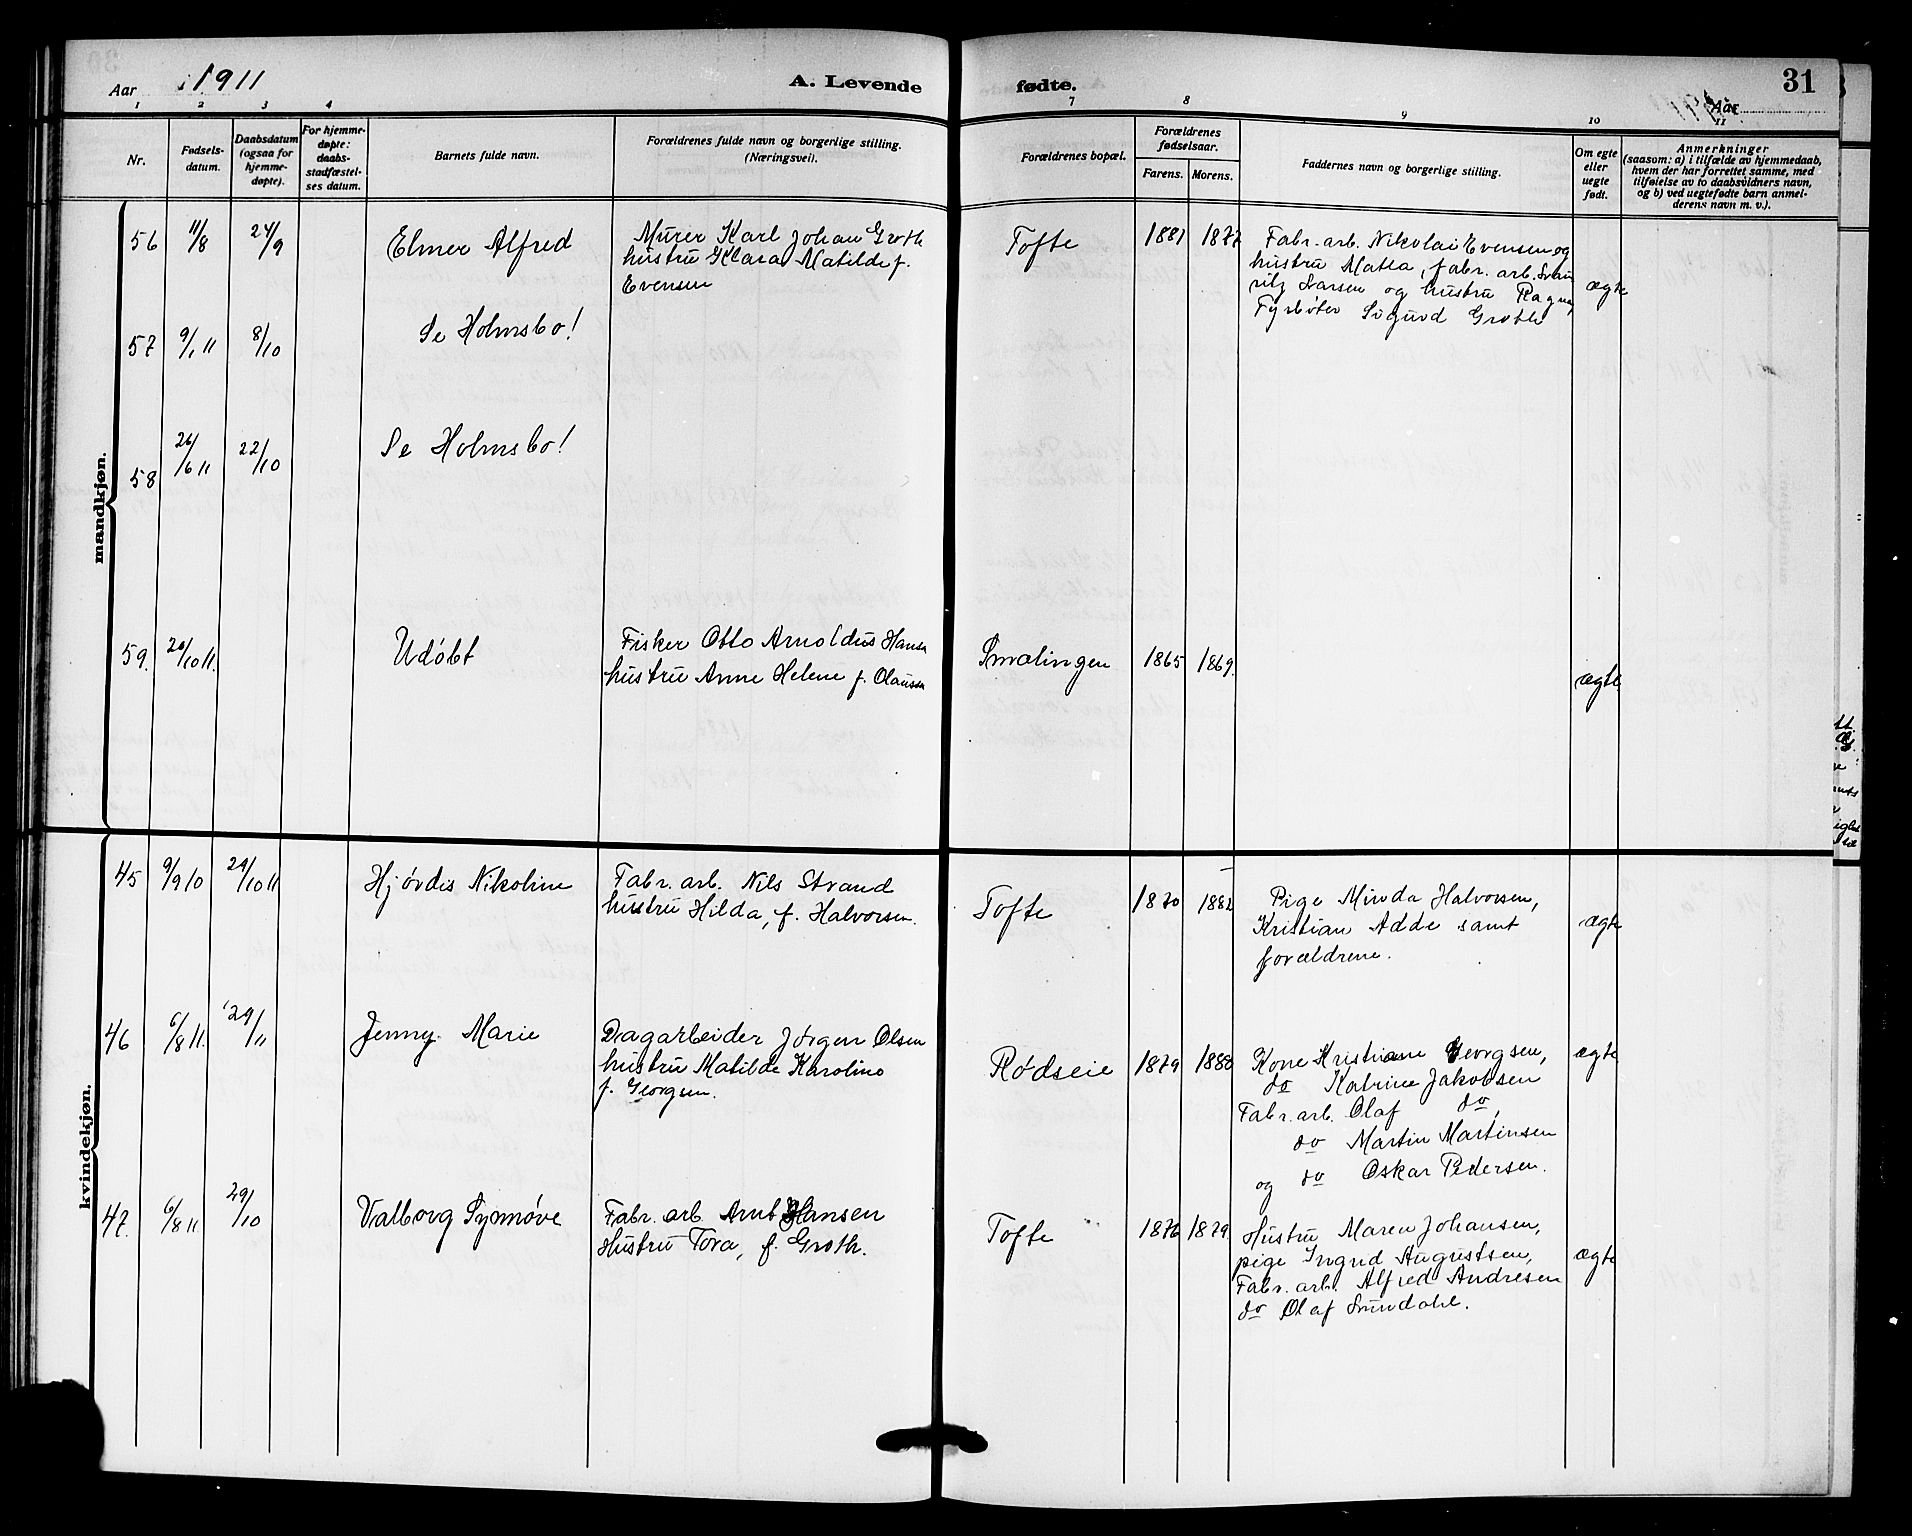 Aar 1911
A. Levende fødte.
31
Aar
1 2 3 4 7 8 9 10 11
Nr.
Fødsels-
datum.
Daabsdatum
(ogsaa for
hjemme-
døpte).
For hjemme-
døpte:
daabs-
stadfæstel-
ses datum.
Barnets fulde navn.
Forældrenes fulde navn og borgerlige stilling.
(Næringsvei).
Forældrenes bopæl.
Forældrenes
fødselsaar.
Farens. Morens.
Faddernes navn og borgerlige stilling.
Om egte
eller
uegte
født.
Anmerkninger
(saasom: a) i tilfælde av hjemmedaab,
hvem der har forrettet samme, med
tilføielse av to daabsvidners navn,
og b) ved uegtefødte barn anmel-
derens navn m. v.).
mandkjøn.
56 11/8 24/9 Elmer Alfred
Murer Karl Johan Groth
hustru Klara Matilde f.
Evensen
Tofte 1881 1877
Fabr. arb. Nikolai Evensen og
hustru Matea, fabr. arb.
Larsen og hustru Ragna,
Fyrbøter Sigurd Groth
ægte
57 9/1 11 8/10 Se Holmsbo!
58 26/6 11 22/10 Se Holmsbo!
59. 20/10 11. Udøbt
Fisker Otto Arnoldus Hansen
hustru Anne Helene f. Olaussen
Smalingen 1865 1869.
ægte
kvindekjøn.
45 9/9 10 29/10 11 Hjørdis Nikoline
Fabr. arb. Nils Strand
hustru Hilda, f. Halvorsen.
Tofte 1870 1882
Pige Minda Halvorsen,
Kristian Adde samt
forældrene.
ægte
46 6/8 11. 29/11 Jenny Marie
Dagarbeider Jørgen Olsen
hustru Matilde Karoline
f. Georgsen.
Rødseie 1879 1888
Kone Kristiane Georgsen,
do Katrine Jakobsen
Fabr. arb. Olaf do,
do Martin Martinsen
og do Oskar Pedersen.
ægte
47. 6/8 11. 29/10 Valborg Synnøve
Fabr. arb Arnt Hansen
Hustru Tora, f. Groth.
Tofte 1876 1879.
Hustru Maren Johansen,
pige Ingrid Augustsen,
Fabr. arb. Alfred Andresen
do Olaf Sundahl.
ægte